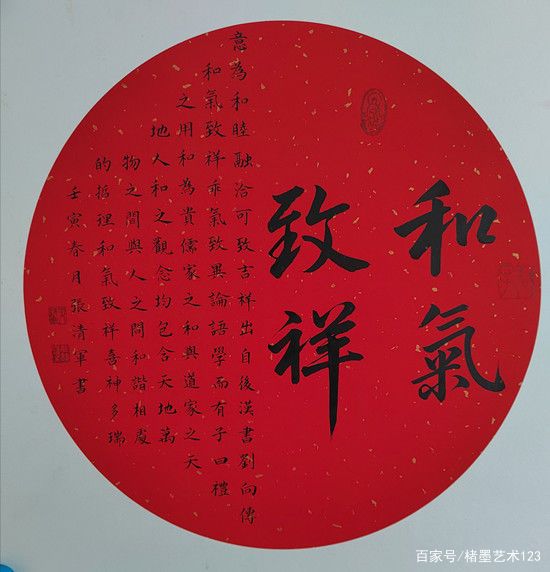 和氣
致祥
意為和睦融洽可致吉祥出自後漢書劉向傳
和氣致祥乖氣致異論語學而有子曰禮
之用和為貴儒家之和與道家之天
地人和之觀念均包含天地萬
物之間與人之間和諧相處
的哲理和氣致祥喜神多瑞
壬寅春月張清軍書
百家号/楮墨艺术123